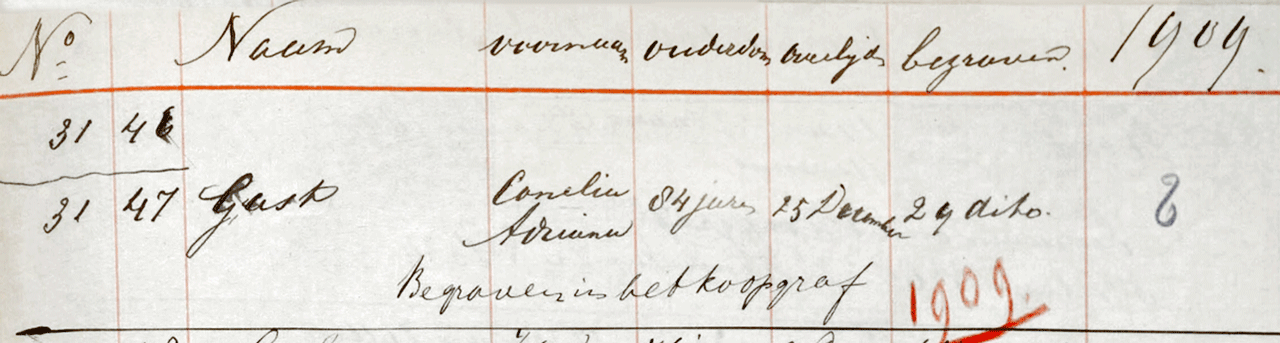 No Naam voornaam ouderdom overlijden begraven. 1909.
31 46
31 47 Gast Cornelia 84 jaren 25 December 29 dito.
Adriana
Begraven in het koopgraf
1909.